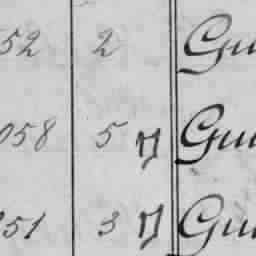 52 2 Gu
058 5 Gu
51 3 Gu